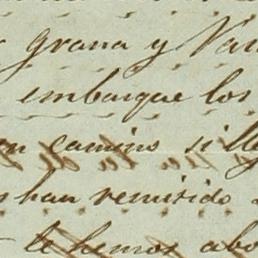 grana y
embarque los
camino si lle
han remitido
le hemos abo